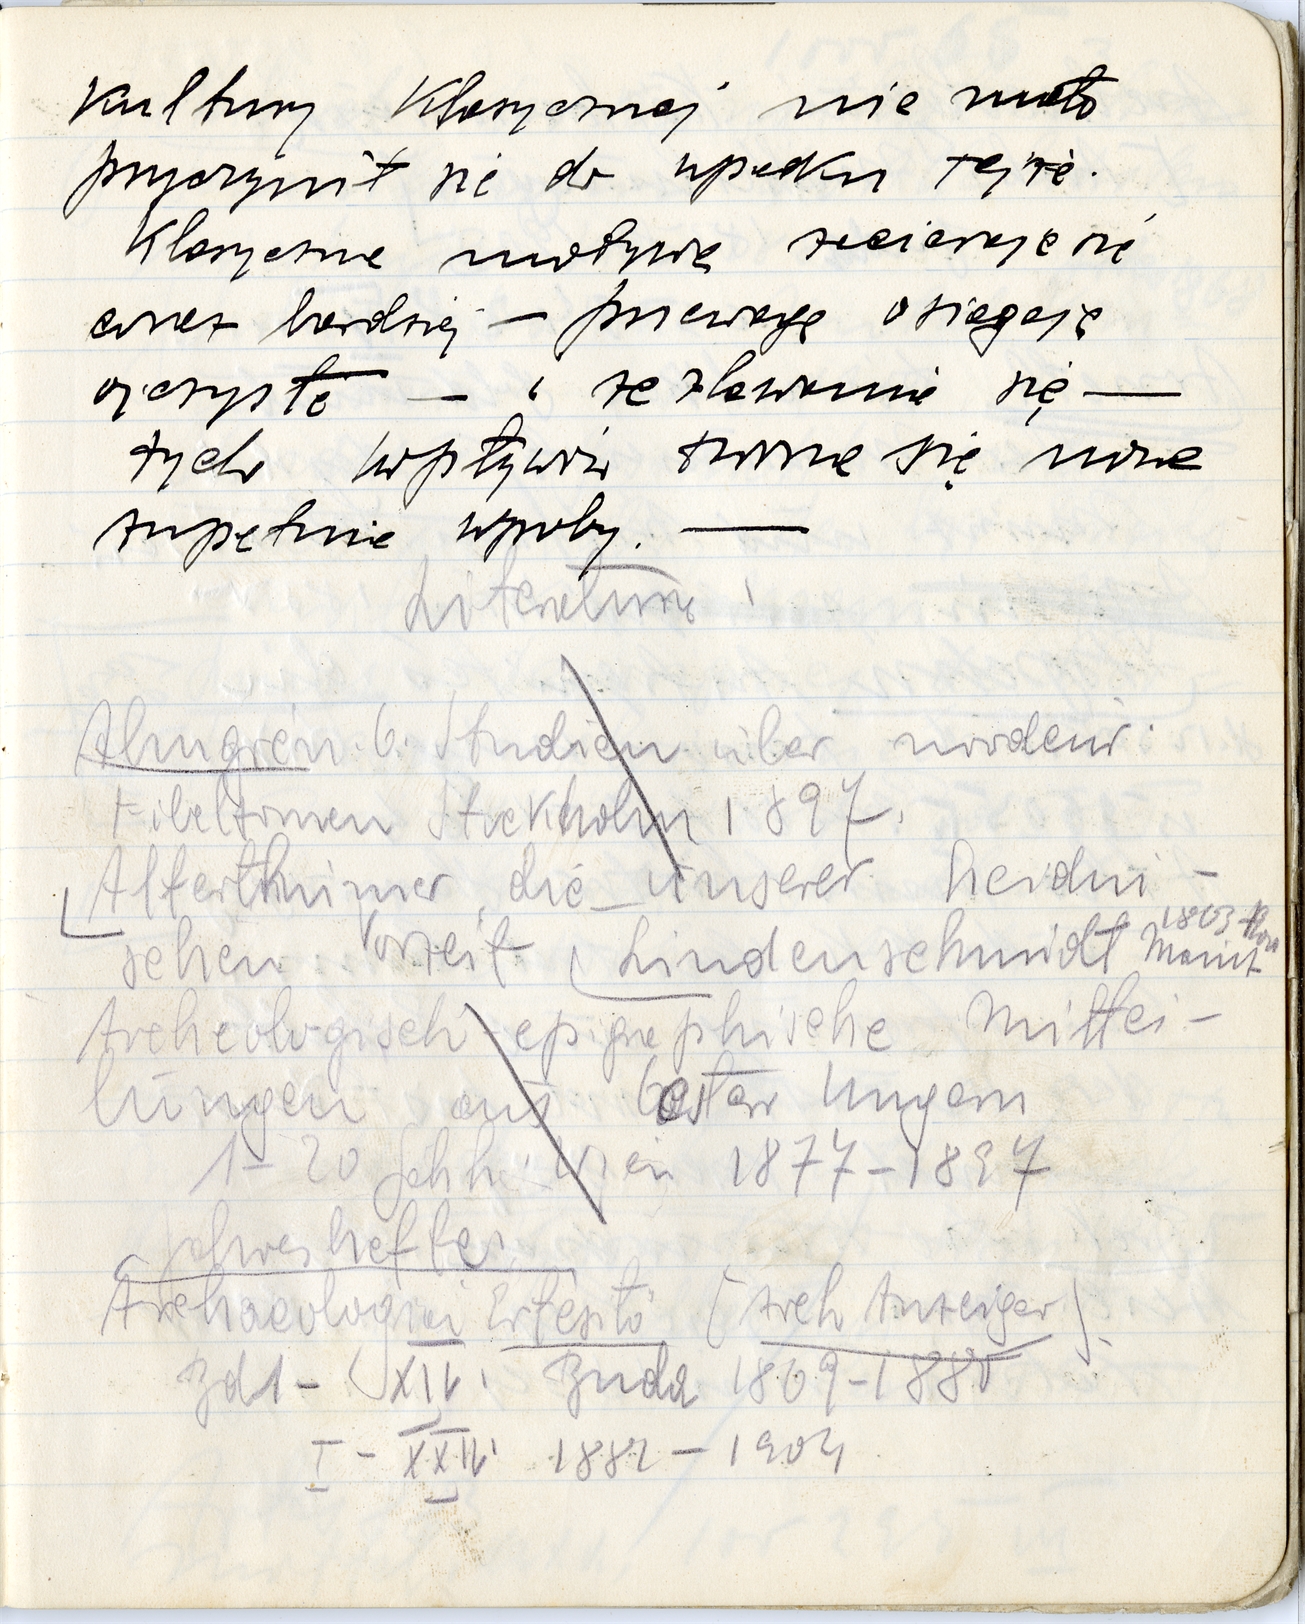 Kultury Klasycznej nie mało
przyczynił się do upadku tejże.
Klasyczne motywa zacierają się
coraz bardziej — przewagę osiągają
ojczyste — i ze zlewania się —
tych wpływów tworzą się nowe
zupełnie wyroby. —
Literatura
Almgren. O. Studien über nordeur.
Fibelformen Stockholm 1897.
Alterthümer, die unserer heidni-
schen Vorzeit Lindenschmidt 1863
Archeologisch epigraphische Mittei-
lungen aus Oesterr Ungarn
1-20 Jahh. Wien 1877-1897
Jahreshefte
Archaeologiai Ertesitö (Arch Anzeiger).
Bd 1 - XIV. Buda 1869-1880
I - XXIV. 1881 - 1904